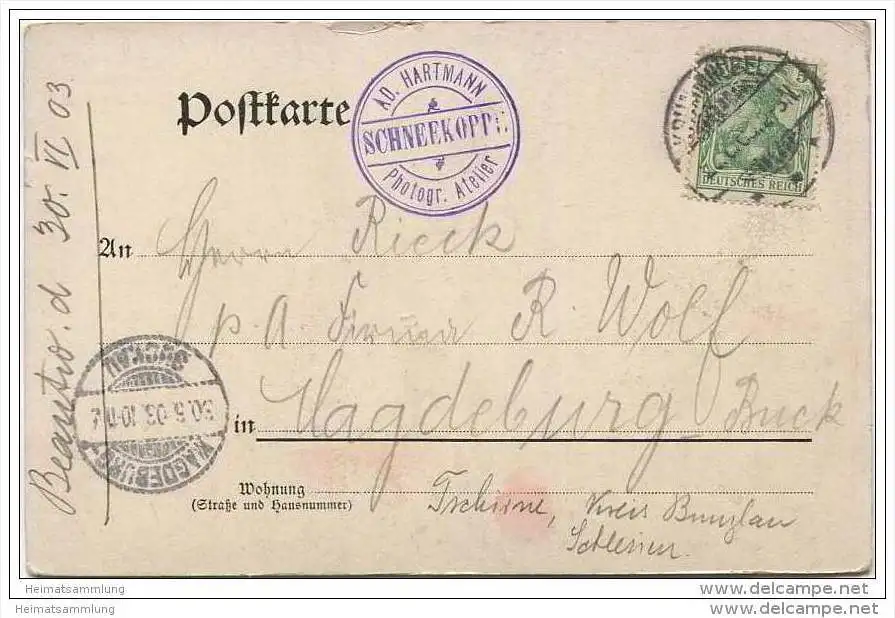 Postkarte
AD. HARTMANN
SCHNEEKOPPE
Photogr. Atelier
KRUMMHÜBEL
DEUTSCHES REICH
Beantw. d 30. VI 03
An Herrn Rieck
p. A Firma R. Wolf
in Magdeburg-Buck
MAGDEBURG
BUCKAU
Wohnung
(Straße und Hausnummer)
Tschirne, Kreis Bunzlau
Schlesien.
Heimatsammlung
Heimatsammlung
www.delcampe.net
www.delcampe.net